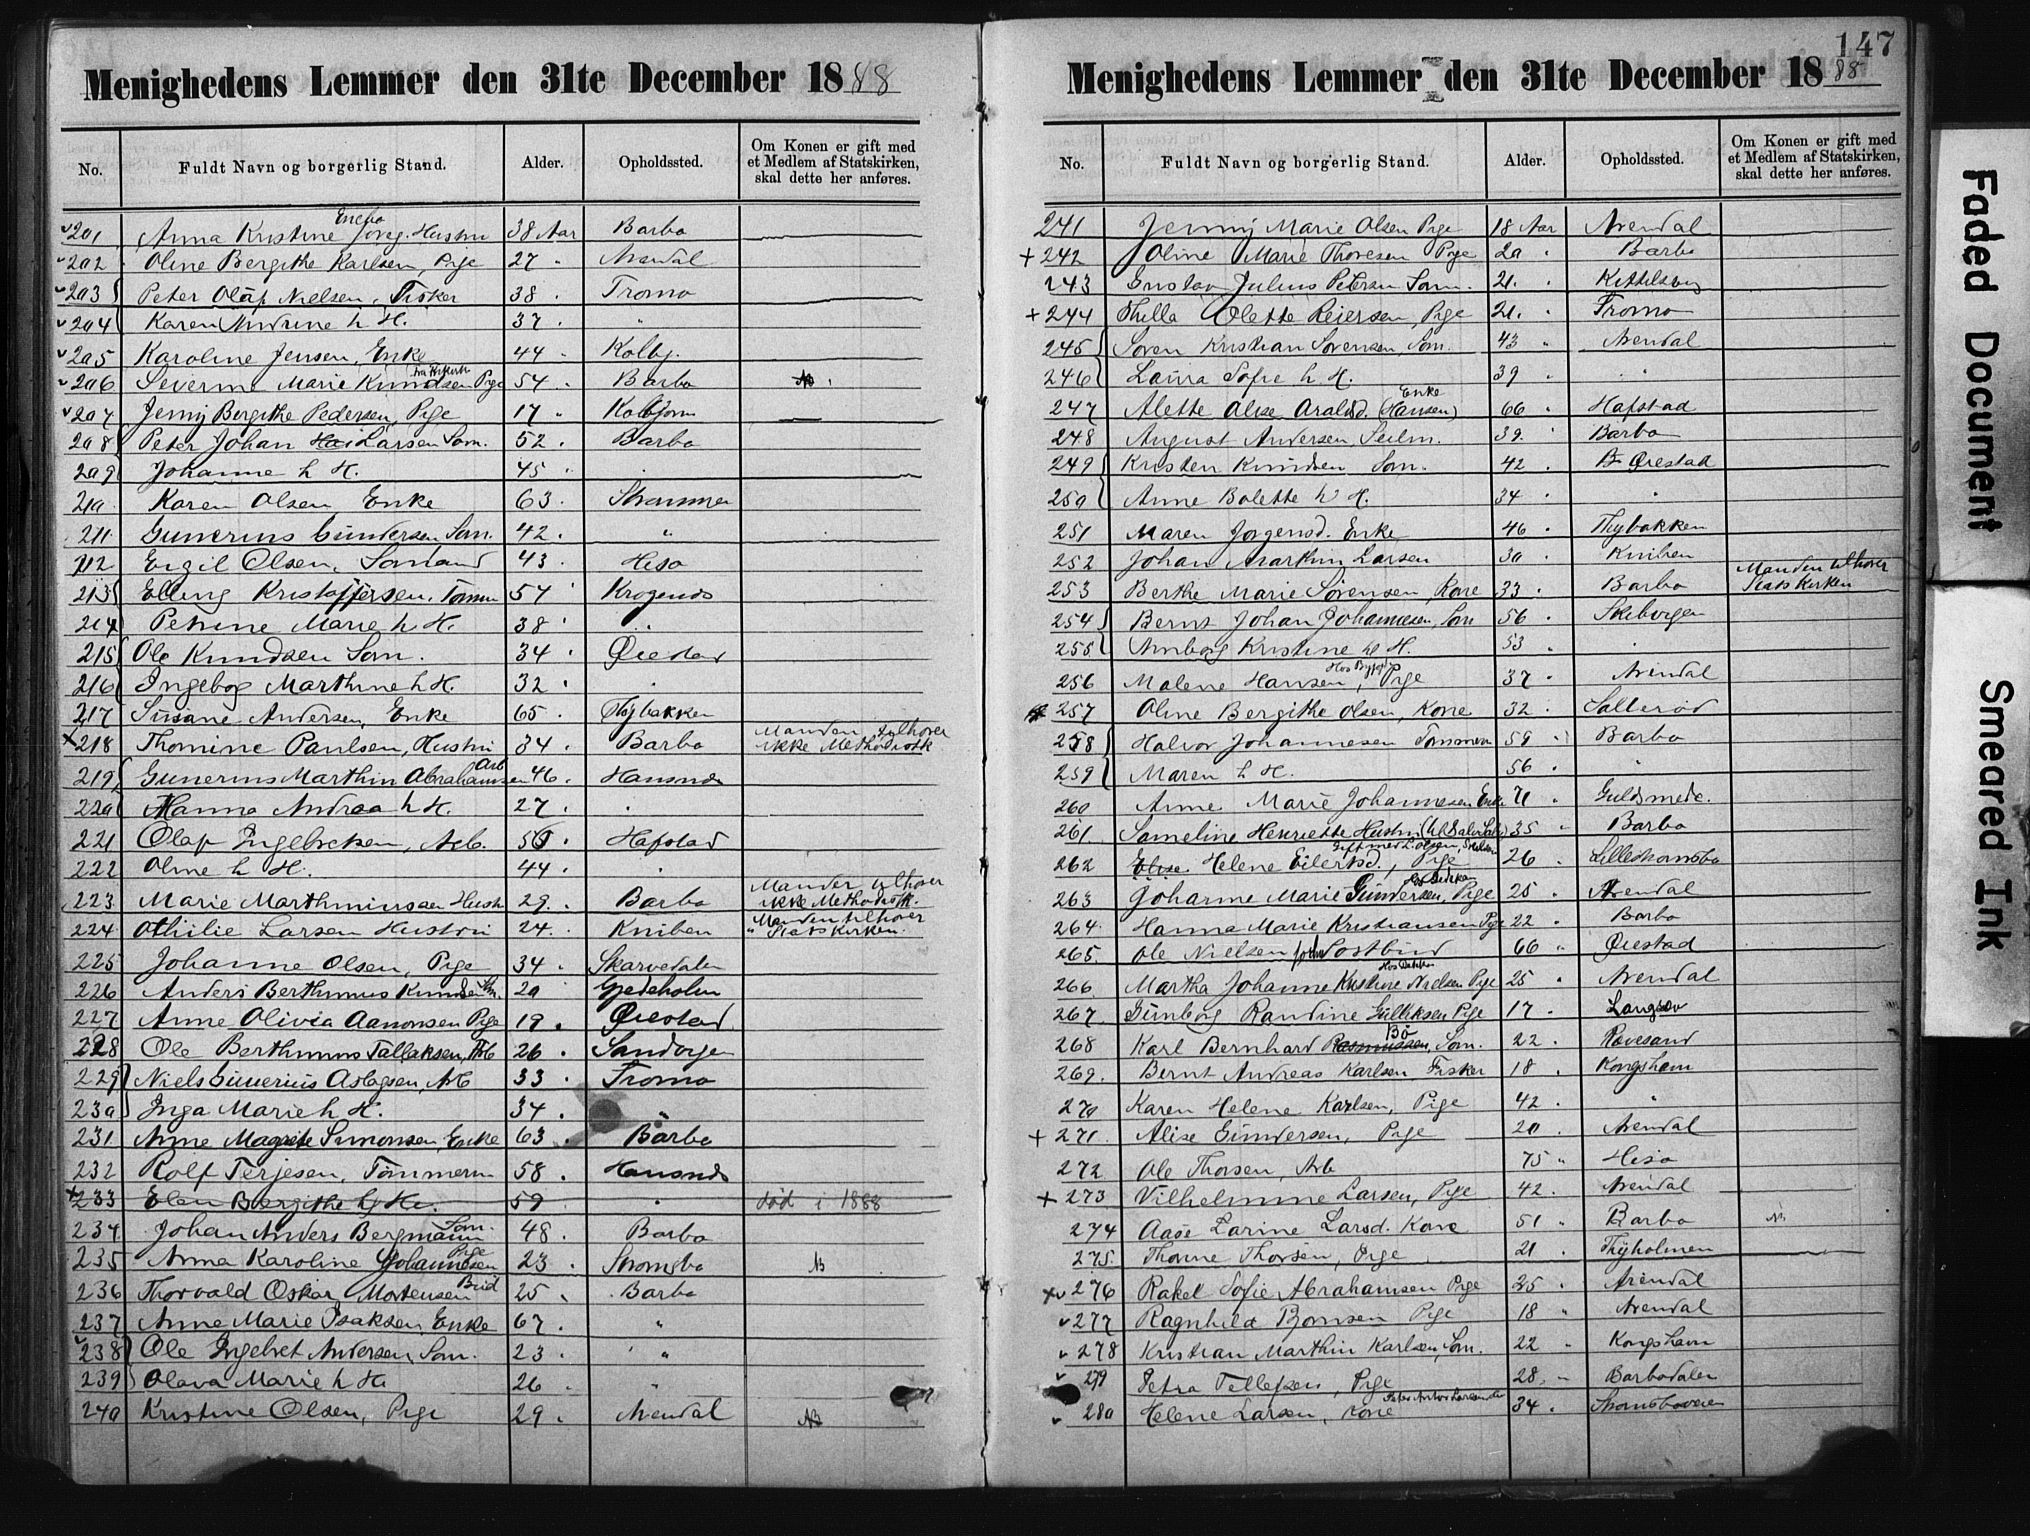 147
Menighedens Lemmer den 31te December 1888
No. Fuldt Navn og borgerlig Stand. Alder. Opholdssted. Om Konen er gift med et Medlem af Statskirken, skal dette her anføres.
201 Anna Kristine Hustru 38 Aar Barbo
202 Oline Bergithe Karlsen, Pige 27 " Arendal
203 Peter Olaf Nielsen, Fisker 38 Tromø
204 Karen Andrine h H. 37 "
205 Karoline Jensen, Enke 44 " Kolbj.
206 Severine Marie Knudsen Pige 54 " Barbo
207 Jenny Bergithe Pedersen, Pige 17 " Kolbjørn
208 Peter Johan Larsen Søm. 52 Barbo
209 Johanne h H. 45
210 Karen Olsen Enke 63 Strømmen
211 Gunerius Gundersen Søm. 42 "
212 Eigil Olsen, Sømand 43 Hisø
213 Elling Kristoffersen, Tømm 57 Krogenes
214 Petrine Marie h H. 38 "
215 Ole Knudsen Søm. 34 Øiestad
216 Ingebog Marthine h H. 32 "
217 Susane Andersen, Enke 65 Thybakken
218 Thomine Paulsen, Hustru 34 Barbo Manden tilhører ikke Methodistk
219 Gunerius Marthin Abrahamsen Arb 46 Hansnes
220 Hanna Andrea h H. 27
221 Olaf Ingebretsen, Arb. 50 Hafstad
222 Oline h H. 44
223 Marie Marthiniussen Hustr 29 Barbo Manden tilhører ikke Methodistk.
224 Othilie Larsen Hustru 24 Kniben Manden tilhører Statskirken.
225 Johanne Olsen, Pige 34 Skarvedalen
226 Anders Berthinius Knudsen Søm. 20 Gjedeholm
227 Anne Olivia Aanonsen Pige 19 Øiestad
228 Ole Berthinius Tallaksen, Arb 26 Sandvigen
229 Niels Gunerius Aslagsen, Arb 33 Tromø
230 Inga Marie h H. 34
231 Anne Magrete Simonsen, Enke 63 Barbo
232 Rolf Terjesen, Tømmerm 58 Hansnes
233 Elen Bergithe h H. 59 " død i 1888
234 Johan Anders Bergmann Søm. 48 Barbo
235 Anna Karoline Johannesen Pige 23 Strømsbo
236 Thorvald Oskar Mortensen 25 Barbo
237 Anne Marie Isaksen, Enke 67 "
238 Ole Ingebret Andersen, Søm. 23 "
239 Olava Marie h H. 26 "
240 Kristine Olsen, Pige 29 Arendal
Menighedens Lemmer den 31te December 1888
No. Fuldt Navn og borgerlig Stand. Alder. Opholdssted. Om Konen er gift med et Medlem af Statskirken, skal dette her anføres.
241 Jenny Marie Olsen Pige 18 Aar Arendal
242 Oline Marie Thoresen Pige 20 " Barbo
243 Gustav Julius Petersen Søm. 21 " Kittelsbog
244 Thilla Olette Reiersen, Pige 21 " Tromø
245 Søren Kristian Sørensen, Søm. 43 " Arendal
246 Laura Sofie h H. 39 "
247 Alette Alise Aralsd. (Hansen) Enke 66 " Hafstad
248 August Andersen Seilm. 39 Barbo
249 Kristen Knudsen Søm. 42 Øiestad
250 Anne Bolette h H. 34 "
251 Maren Jørgensd. Enke 46 " Thybakken
252 Johan Marthin Larsen 30 Kniben
253 Berthe Marie Sørensen, Kone 33 Barbo Manden tilhører Stats Kirken
254 Bernt Johan Johannesen, Søm 56 Skibvigen
255 Amborg Kristine h H. 53
256 Malene Hansen, Pige 37 Arendal
257 Oline Bergithe Olsen, Kone 32 Salterød
258 Halvor Johannesen Tømmerm 59 Barbo
259 Maren h H. 56
260 Anne Marie Johannesen Enke 71 Guldsmede.
261 Sameline Henriette Hustru 35 Barbo
262 Elise Helene Eilertsd., Pige 26 Lillestrømsbo
263 Johanne Marie Gundersen, Pige 25 Arendal
264 Hanna Marie Kristiansen Pige 22 Barbo
265 Ole Nielsen Postbud 66 Øiestad
266 Martha Johanne Kristine Nielsen Pige 25 Arendal
267 Gunborg Randine Gulliksen Pige 17 Langsev
268 Karl Bernhard Rasmussen Bø, Søm. 22 Revesand
269 Bernt Andreas Karlsen Fisker 18 Kongshavn
270 Karen Helene Karlsen, Pige 42 "
271 Alise Gundersen, Pige 20 Arendal
272 Ole Thorsen, Arb 75 " Hisø
273 Vilhelmine Larsen, Pige 42 Arendal
274 Aase Larine Larsd. Kone 51 " Barbo
275 Thorine Thorsen, Pige 21 Thyholmen
276 Rakel Sofie Abrahamsen Pige 25 Arendal
277 Ragnhild Bjørnsen Pige 18 " Arendal
278 Kristian Marthin Karlsen, Søm. 22 " Kongshavn
279 Petra Tellefsen, Pige 28 " Barbodalen
280 Helene Larsen, Kone 34 Strømsboveien
Faded Document
Smeared Ink